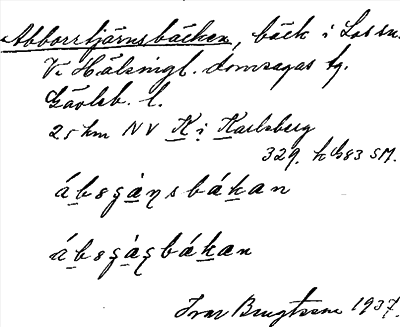 Abborrtjärnsbäcken, bäck i Los sn.
V. Hälsingl. domsagas tg.
Gävleb. l.
25 km NV K i Karlsberg
329. h 83 SM.
ábsgąŋsbákan
ábsgąçbákan
Ivar Bengtsson 1937.